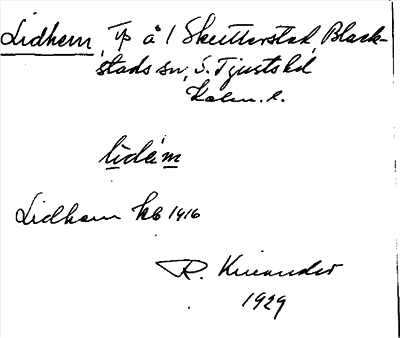 Lidhem, Tp å 1 Skuttorstad, Black-
stads sn, S. Tjusts hd
Kalm. l.
lìdém
Lidham kb 1916
R. Kinander
1929